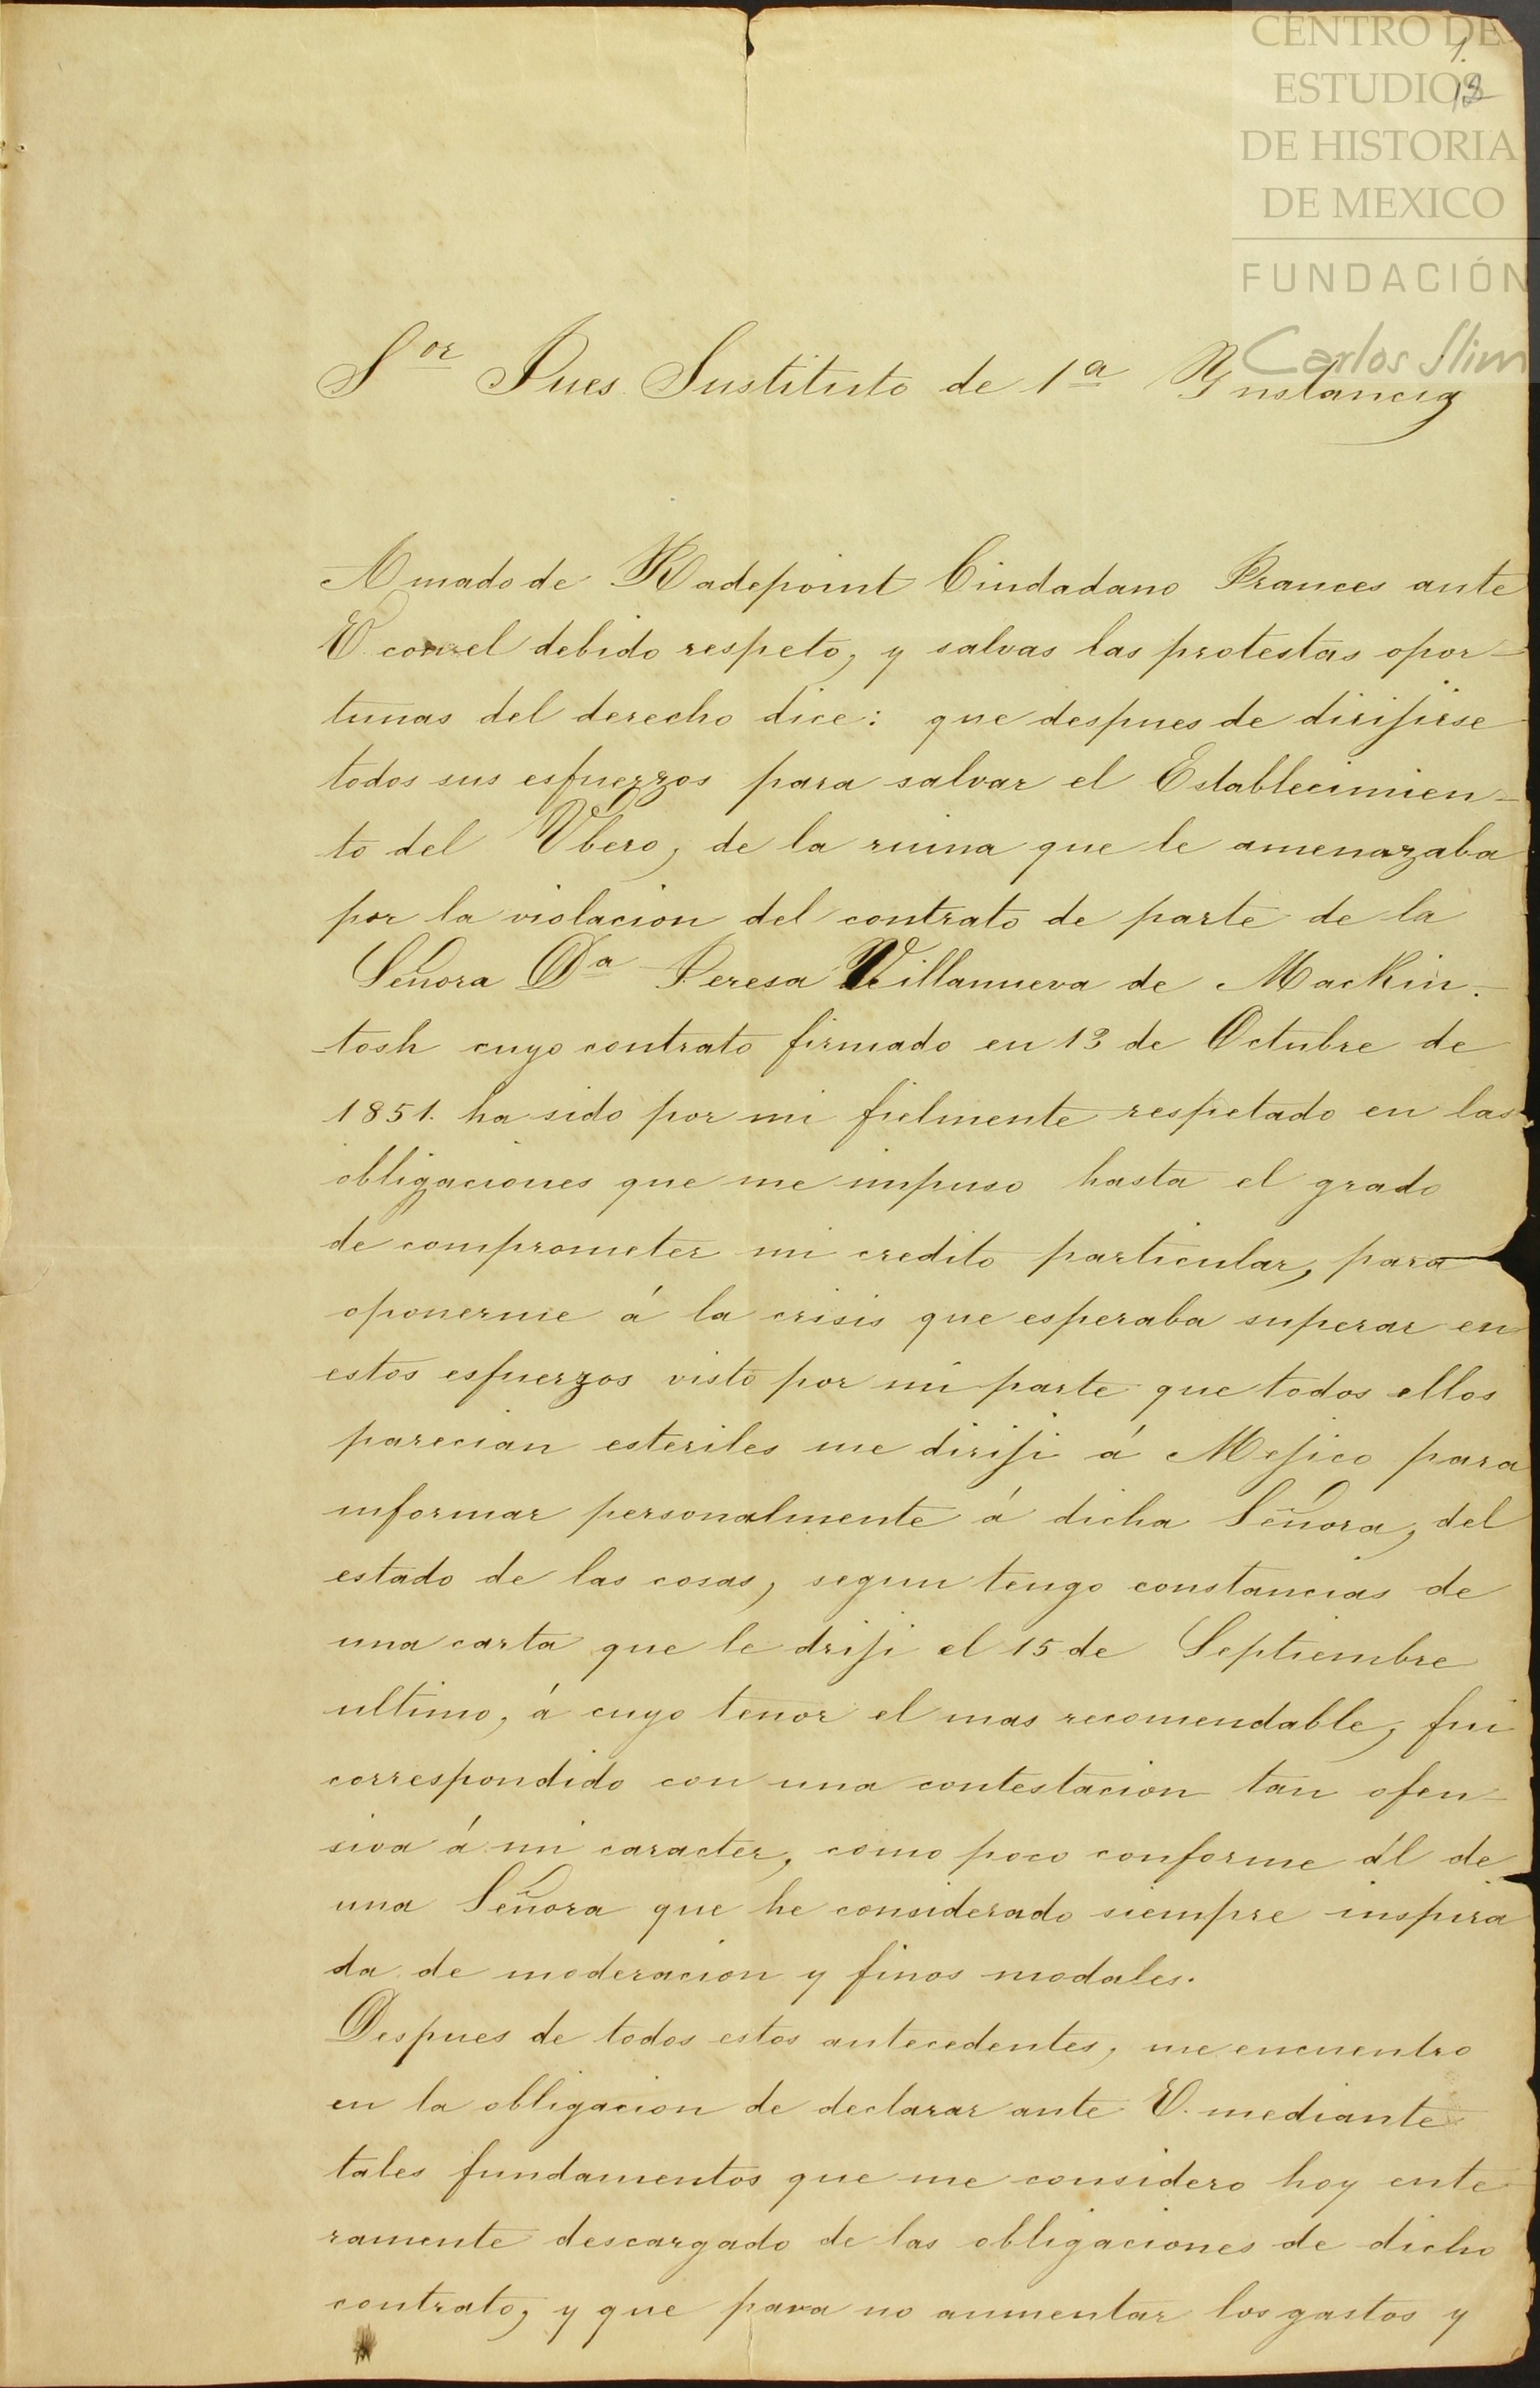 CENTRO DE
ESTUDIOS
DE HISTORIA
DE MEXICO
FUNDACIÓN
Carlos Slim
18
Sor Jues Sustituto de 1a Ynstancia
Amado de Radepoint Ciudadano Frances ante
V. con el debido respeto, y salvas las protestas opor-
tunas del derecho dice: que despues de dirijirse
todos sus esfuerzos para salvar el Establecimien-
to del Ubero, de la ruina que le amenazaba
por la violacion del contrato de parte de la
Señora Da Teresa Villanueva de MacKin-
-tosh cuyo contrato firmado en 13 de Octubre de
1851. ha sido por mi fielmente respetado en las
obligaciones que me impuso hasta el grado
de comprometer mi credito particular, para
oponerme á la crisis que esperaba superar en
estos esfuerzos visto por mi parte que todos ellos
parecian esteriles me diriji á Mejico para
informar personalmente á dicha Señora, del
estado de las cosas, segun tengo constancias de
una carta que le driji el 15 de Septiembre
ultimo, á cuyo tenor el mas recomendable, fui
correspondido con una contestacion tan ofen-
siva á mi caracter, como poco conforme ál de
una Señora que he considerado siempre inspira
da de moderacion y finos modales.
Despues de todos estos antecedentes, me encuentro
en la obligacion de declarar ante V. mediante
tales fundamentos que me considero hoy ente
ramente descargado de las obligaciones de dicho
contrato, y que para no aumentar los gastos y